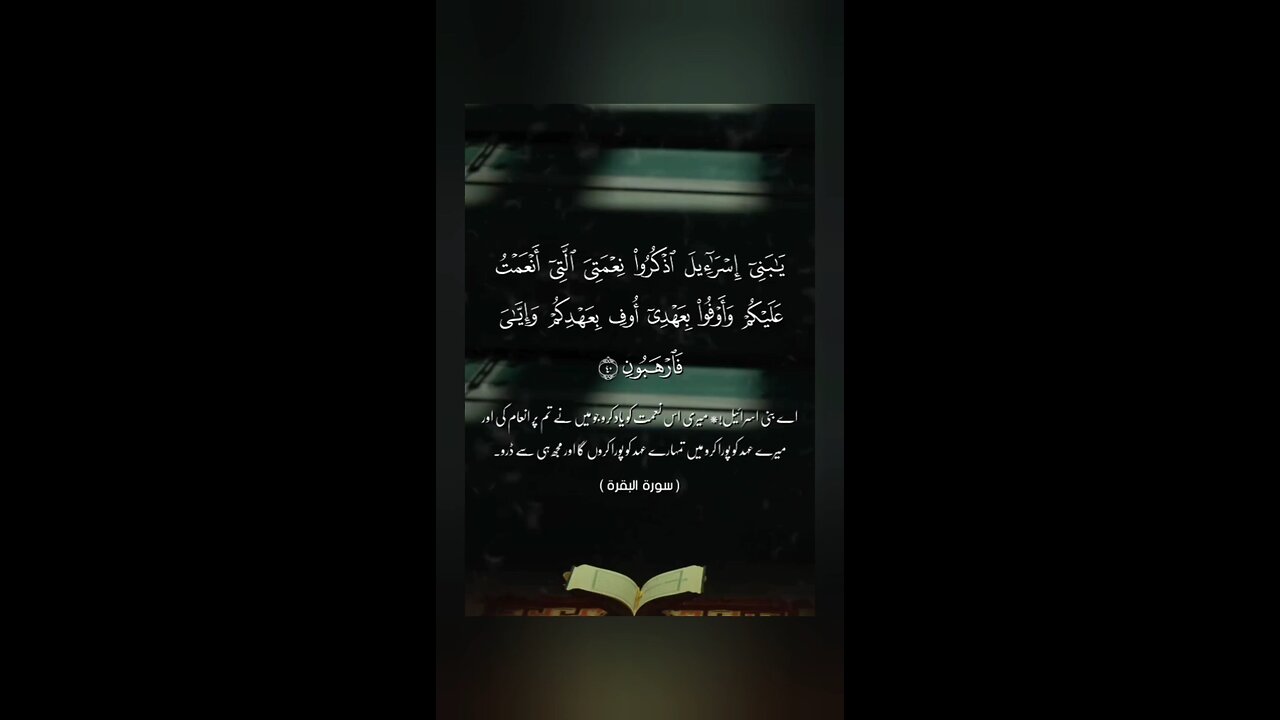 يَـٰبَنِىٓ إِسْرَٰٓءِيلَ ٱذْكُرُوا۟ نِعْمَتِىَ ٱلَّتِىٓ أَنْعَمْتُ
عَلَيْكُمْ وَأَوْفُوا۟ بِعَهْدِىٓ أُوفِ بِعَهْدِكُمْ وَإِيَّـٰىَ
فَٱرْهَبُونِ ٤٠
اے بنی اسرائیل!* میری اس نعمت کو یاد کرو جو میں نے تم پر انعام کی اور
میرے عہد کو پورا کرو میں تمہارے عہد کو پورا کروں گا اور مجھ ہی سے ڈرو۔
( سورة البقرة )